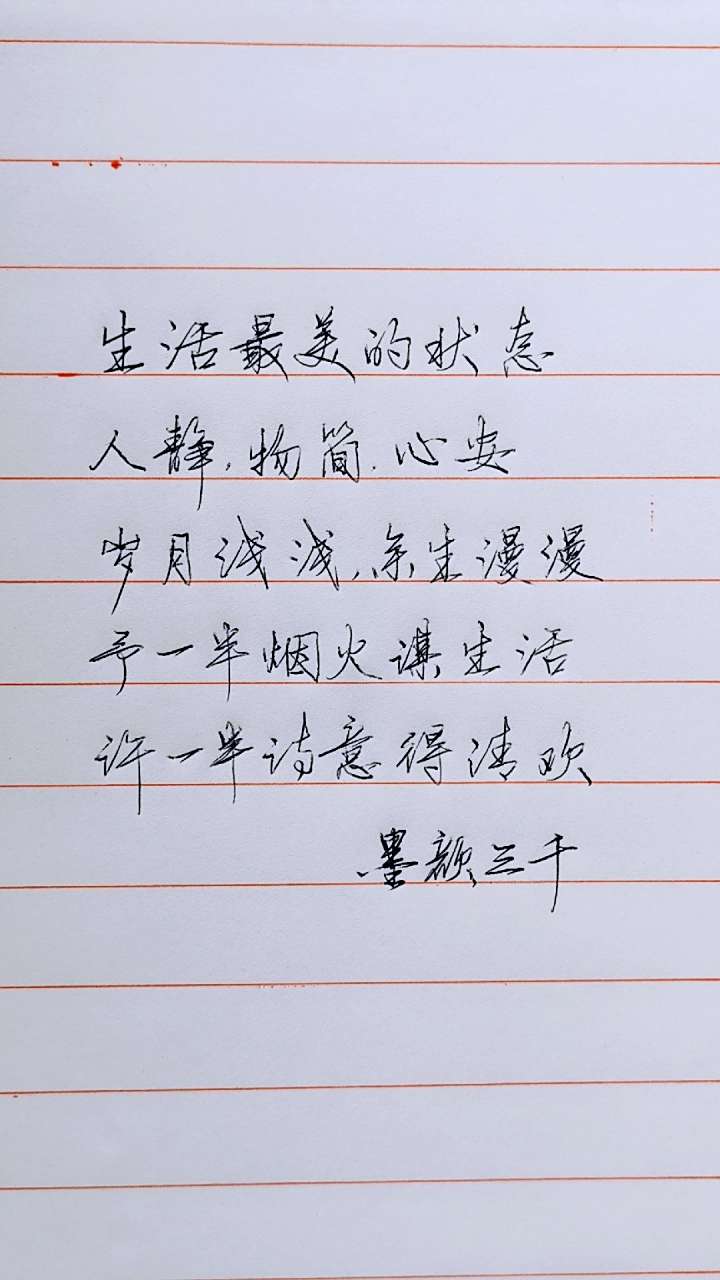 生活最美的状态
人静,物简,心安
岁月浅浅,余生漫漫
予一半烟火谋生活
许一半诗意得清欢
墨颜三千